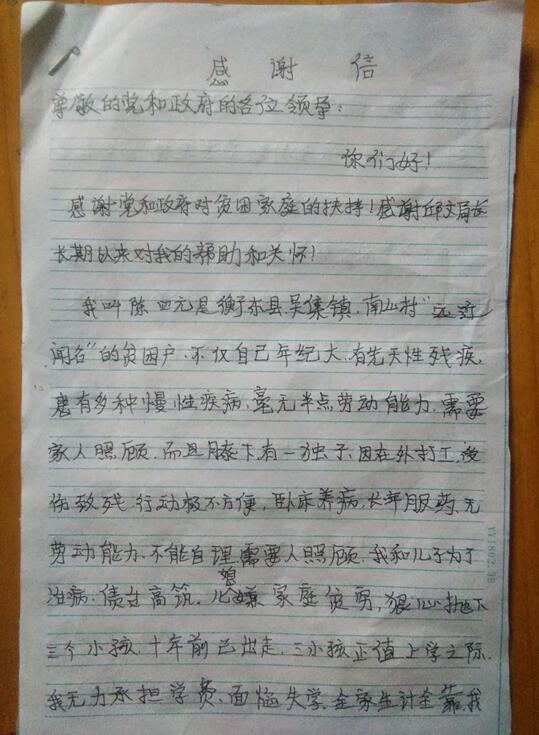 感谢信
尊敬的党和政府的各位领导：
你们好！
感谢党和政府对贫困家庭的扶持！感谢邱文局长
长期以来对我的帮助和关怀！
我叫陈四元是衡东县吴集镇，南山村“远近
闻名”的贫困户，不仅自己年纪大，有先天性残疾，
患有多种慢性疾病，毫无半点劳动能力，需要
家人照顾，而且膝下有一独子，因在外打工，受
伤致残，行动极不方便，卧床养病，长年服药，无
劳动能力，不能自理需要人照顾，我和儿子为了
治病，债台高筑，儿媳嫌家庭贫穷，狠心抛下
三个小孩，十年前已出走，三小孩正值上学之际，
我无力承担学费、面临失学，全家生计全靠我
YY1802.3B